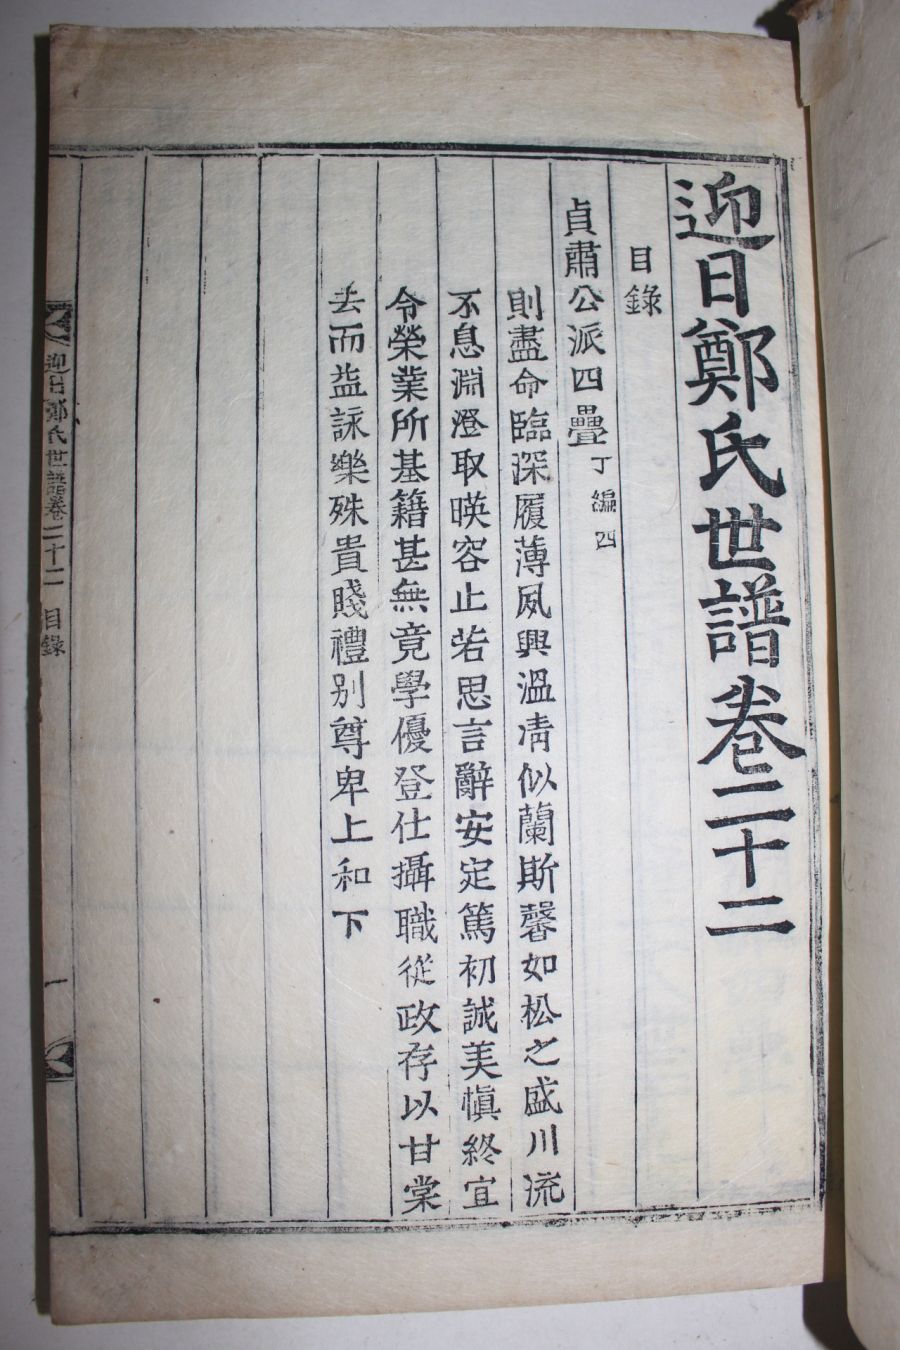 迎日鄭氏世譜卷二十二
目錄
貞肅公派四疊丁編四
則盡命臨深履薄夙興溫凊似蘭斯馨如松之盛川流
不息淵澄取暎容止若思言辭安定篤初誠美愼終宜
令榮業所基籍甚無竟學優登仕攝職從政存以甘棠
去而益詠樂殊貴賤禮別尊卑上和下
迎日鄭氏世譜卷二十二 目錄 一